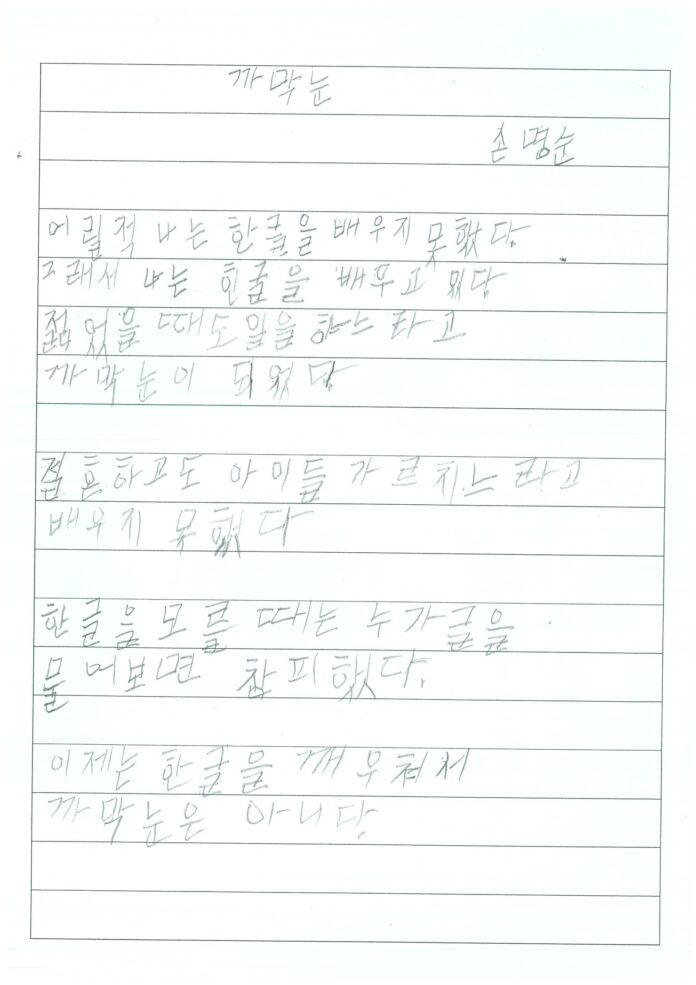 까막눈
손명순
어릴적 나는 한글을 배우지 못했다.
그래서 나는 한글을 배우고 있다
젊었을 때도 일을 하느라고
까막눈이 되었다.
결혼하고도 아이들 가르치느라고
배우지 못했다
한글을 모를 때는 누가글을
물어보면 창피했다.
이제는 한글을 깨우쳐서
까막눈은 아니다.